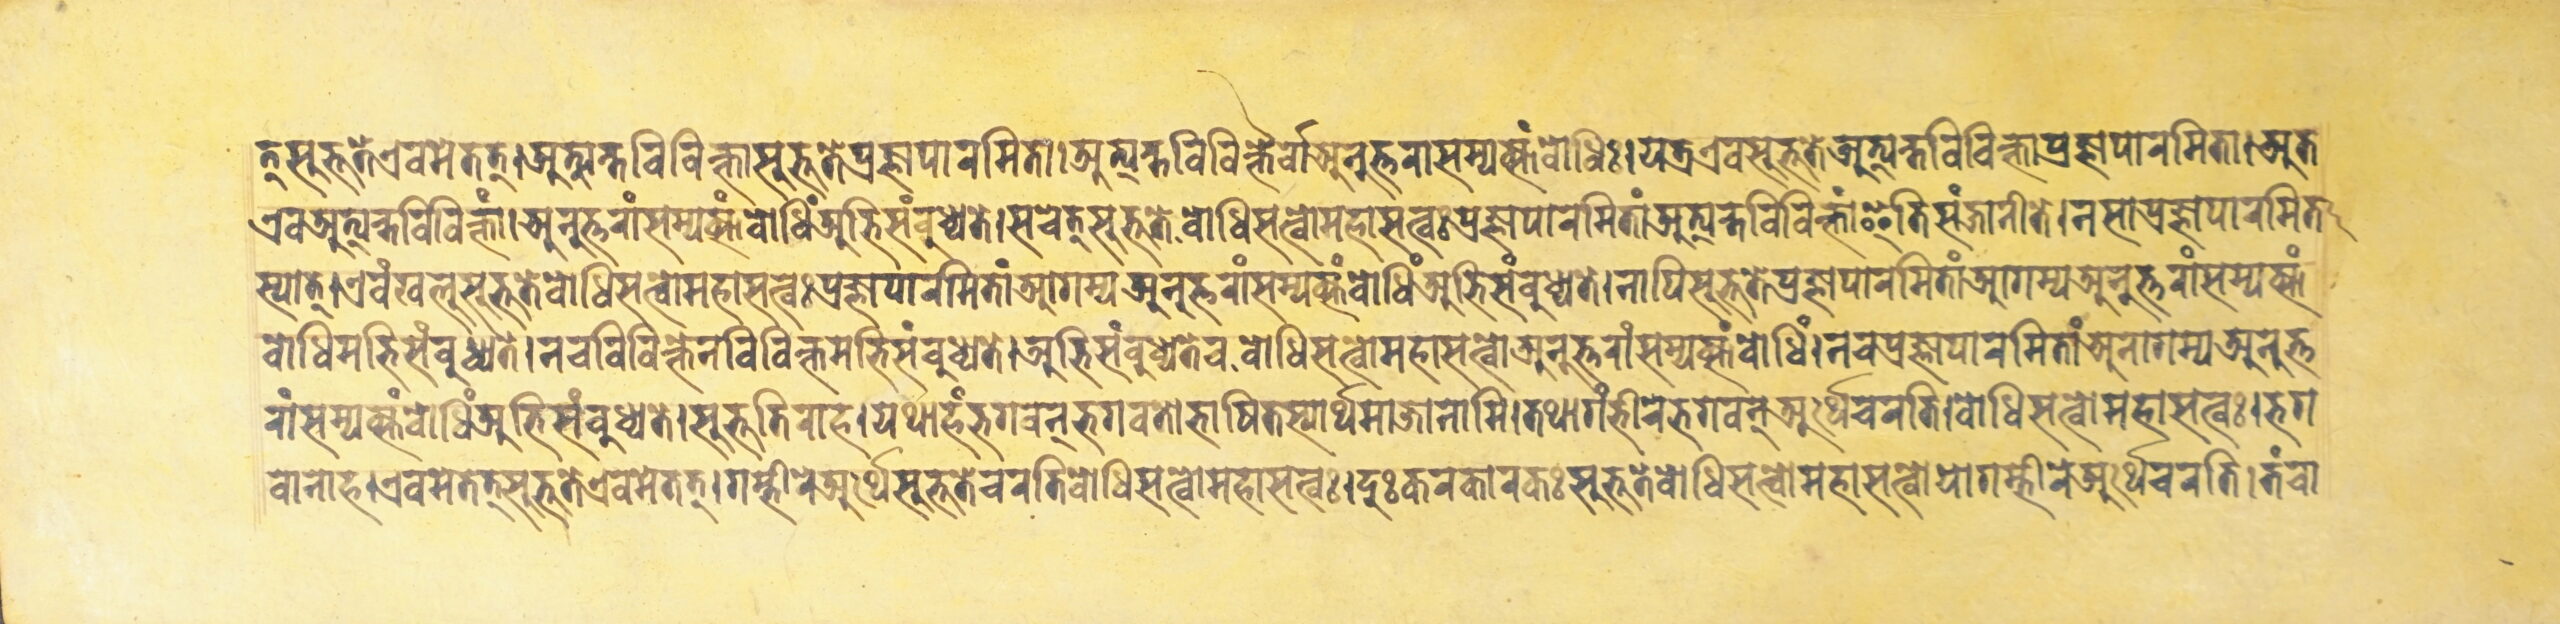 त्सुभूते एवमेतत्। अत्यन्तविविक्ता सुभूते प्रज्ञापारमिता। अत्यन्तविविक्तैव अनुत्तरा सम्यक्संबोधिः। यत्र एव सुभूते अत्यन्तविविक्ता प्रज्ञापारमिता। अत
एव अत्यन्तविविक्तां। अनुत्तरां सम्यक्सांबोधिं अभिसंबुध्यते। सचेत्सुभूते बोधिसत्वो महासत्वः प्रज्ञापारमितां अत्यन्तविविक्तां इति संजानीते। न सा प्रज्ञापारमिता
स्यात्। एवं खलु सुभूते बोधिसत्वो महासत्वः प्रज्ञापारमितां आगम्य अनुत्तरां सम्यक्संबोधिं अभिसंबुध्यते। नापि सुभूते प्रज्ञापारमितां आगम्य अनुत्तरां सम्यक्सां
बोधिमभिसंबुध्यते। न च विविक्तेन विविक्तमभिसंबुध्यते। अभिसंबुध्यते च बोधिसत्वो महासत्वो अनुत्तरां सम्यक्संबोधिं। न च प्रज्ञापारमितां अनागम्य अनुत्त
रां सम्यक्संबोधिं अभिसंबुध्यते। सुभूतिराह। यथाहं भगवन् भगवतो भाषितस्यार्थमाजानामि। तथा गंभीरे भगवन् अर्थे चरति। बोधिसत्वो महासत्वः। भग
वानाह। एवमेतत्सुभूते एवमेतत्। गम्भीरे अर्थे सुभूते चरति बोधिसत्वो महासत्वः। दुःकरकारकः सुभूते बोधिसत्वो महासत्वो यो गम्भीरे अर्थे चरति। तं चा